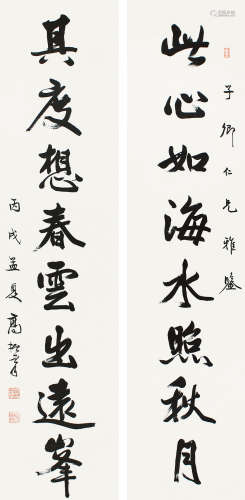 此心如海水照秋月
子卿仁兄雅鑒
其度想春雲出遠峯
丙戌孟夏高振霄